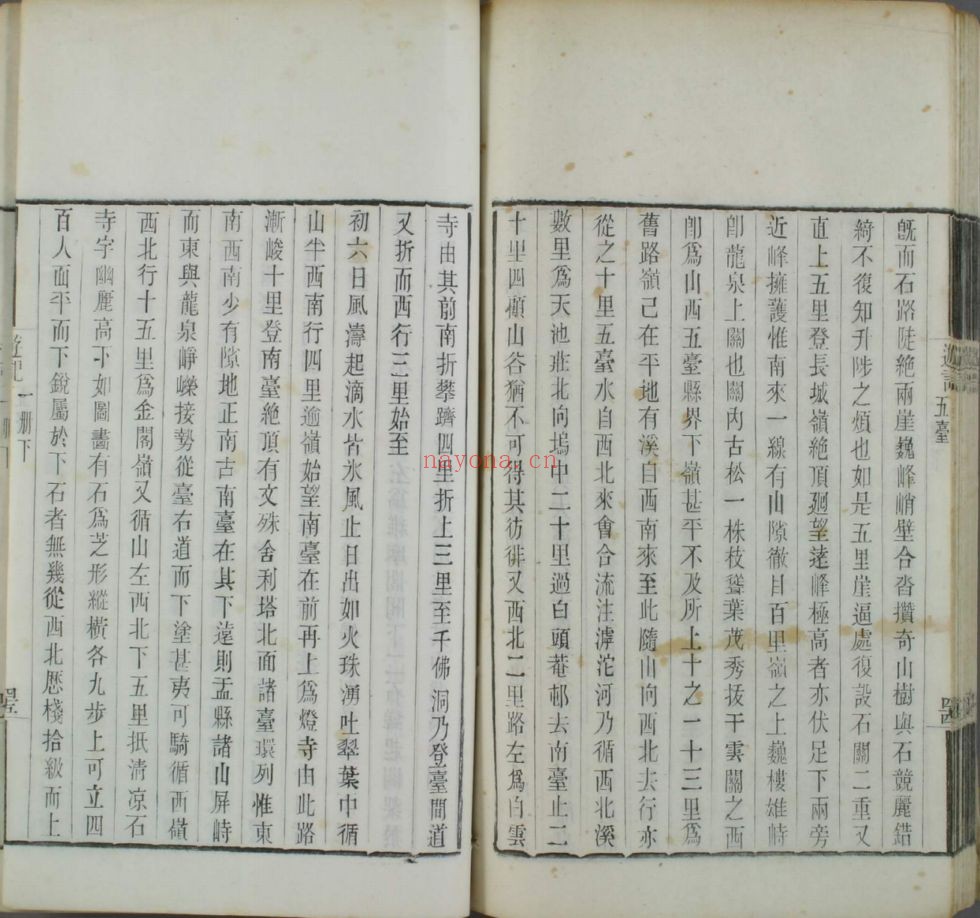 既而石路陡絕兩崖巍峰峭壁合沓攢奇山樹與石競麗錯
綺不復知升陟之煩也如是五里崖逼處復設石關二重又
直上五里登長城嶺絕頂廻望遠峰極高者亦伏足下兩旁
近峰擁護惟南來一線有山隙徹目百里嶺之上巍樓雄峙
卽龍泉上關也關內古松一株枝聳葉茂秀拔干雲關之西
卽爲山西五臺縣界下嶺甚平不及所上十之一十三里爲
舊路嶺已在平地有溪自西南來至此隨山向西北去行亦
從之十里五臺水自西北來會合流注滹沱河乃循西北溪
數里爲天池莊北向塢中二十里過白頭菴邨去南臺止二
十里四顧山谷猶不可得其彷彿又西北二里路左爲白雲
遊記 五臺
寺由其前南折攀躋四里折上三里至千佛洞乃登臺間道
又折而西行三里始至
初六日風濤起滴水皆氷風止日出如火珠湧吐翠葉中循
山半西南行四里逾嶺始望南臺在前再上爲燈寺由此路
漸峻十里登南臺絕頂有文殊舍利塔北面諸臺環列惟東
南西南少有隙地正南古南臺在其下遠則盂縣諸山屏峙
而東與龍泉崢嶸接勢從臺右道而下塗甚夷可騎循西嶺
西北行十五里爲金閣嶺又循山左西北下五里抵清凉石
寺宇幽麗高下如圖畫有石爲芝形縱橫各九步上可立四
百人面平而下銳屬於下石者無幾從西北歷棧拾級而上
遊記 一册下
nayona.cn